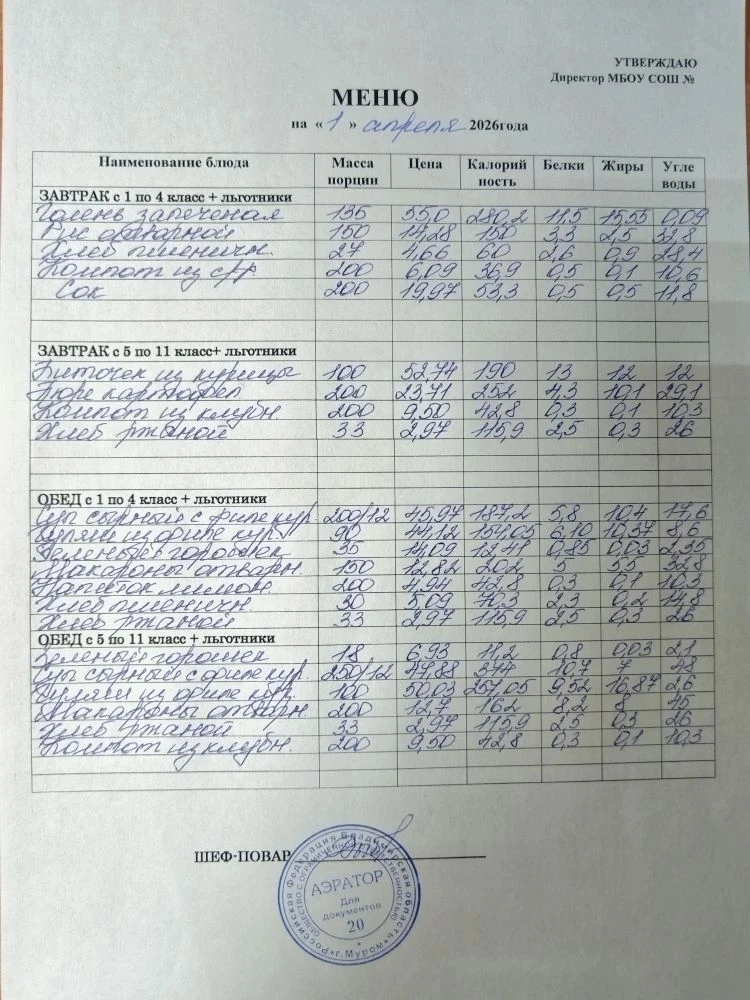 УТВЕРЖДАЮ
Директор МБОУ СОШ №
МЕНЮ
на « 1 » апреля 2026года
Наименование блюда Масса порции Цена Калорий ность Белки Жиры Угле воды
ЗАВТРАК с 1 по 4 класс + льготники
Голень запеченая 135 55,0 280,2 11,5 15,55 0,09
Рис отварной 150 14,28 150 3,3 2,5 32,8
Хлеб пшеничн. 27 4,66 60 2,6 0,9 28,4
Компот из с/ф 200 6,09 36,9 0,5 0,1 10,6
Сок 200 19,97 53,3 0,5 0,5 11,8
ЗАВТРАК с 5 по 11 класс+ льготники
Биточек из курицы 100 52,74 190 13 12 12
Пюре картофел 200 23,71 252 4,3 10,1 29,1
Компот из клубн. 200 9,50 42,8 0,3 0,1 10,3
Хлеб ржаной 33 2,97 115,9 2,5 0,3 26
ОБЕД с 1 по 4 класс + льготники
Суп сырный с филе кур. 200/12 45,97 187,2 5,8 10,4 17,6
Гуляш из филе кур. 90 44,12 154,05 6,10 10,37 8,6
Зеленый горошек 35 14,09 12,41 0,85 0,03 2,35
Макароны отварн. 150 12,82 202 5 5,5 32,8
Напиток лимон. 200 4,94 42,8 0,3 0,1 10,3
Хлеб пшеничн. 30 5,09 70,3 2,3 0,2 14,8
Хлеб ржаной 33 2,97 115,9 2,5 0,3 26
ОБЕД с 5 по 11 класс + льготники
Зеленый горошек 18 6,93 11,2 0,8 0,03 2,1
Суп сырный с филе кур. 250/12 47,88 344 10,7 7 48
Гуляш из филе кур. 100 50,03 257,05 9,52 16,87 2,6
Макароны отварн. 200 12,7 162 8,2 8 45
Хлеб ржаной 33 2,97 115,9 2,5 0,3 26
Компот из клубн. 200 9,50 42,8 0,3 0,1 10,3
ШЕФ-ПОВАР
Российская Федерация Владимирская область
ОБЩЕСТВО С ОГРАНИЧЕННОЙ ОТВЕТСТВЕННОСТЬЮ
АЭРАТОР
Для
документов
20
г.Муром